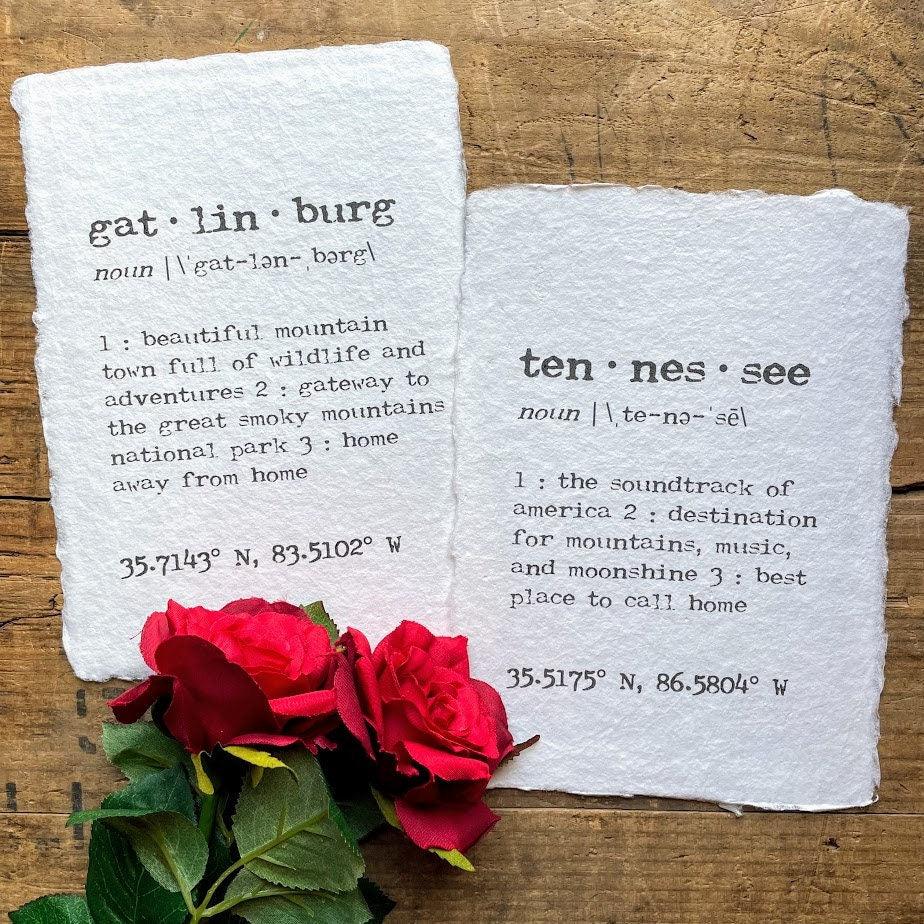 gat · lin · burg
noun |\ˈgat-lən-ˌbərg\
1 : beautiful mountain
town full of wildlife and
adventures 2 : gateway to
the great smoky mountains
national park 3 : home
away from home
35.7143° N, 83.5102° W
ten · nes · see
noun |\ˌte-nə-ˈsē\
1 : the soundtrack of
america 2 : destination
for mountains, music,
and moonshine 3 : best
place to call home
35.5175° N, 86.5804° W